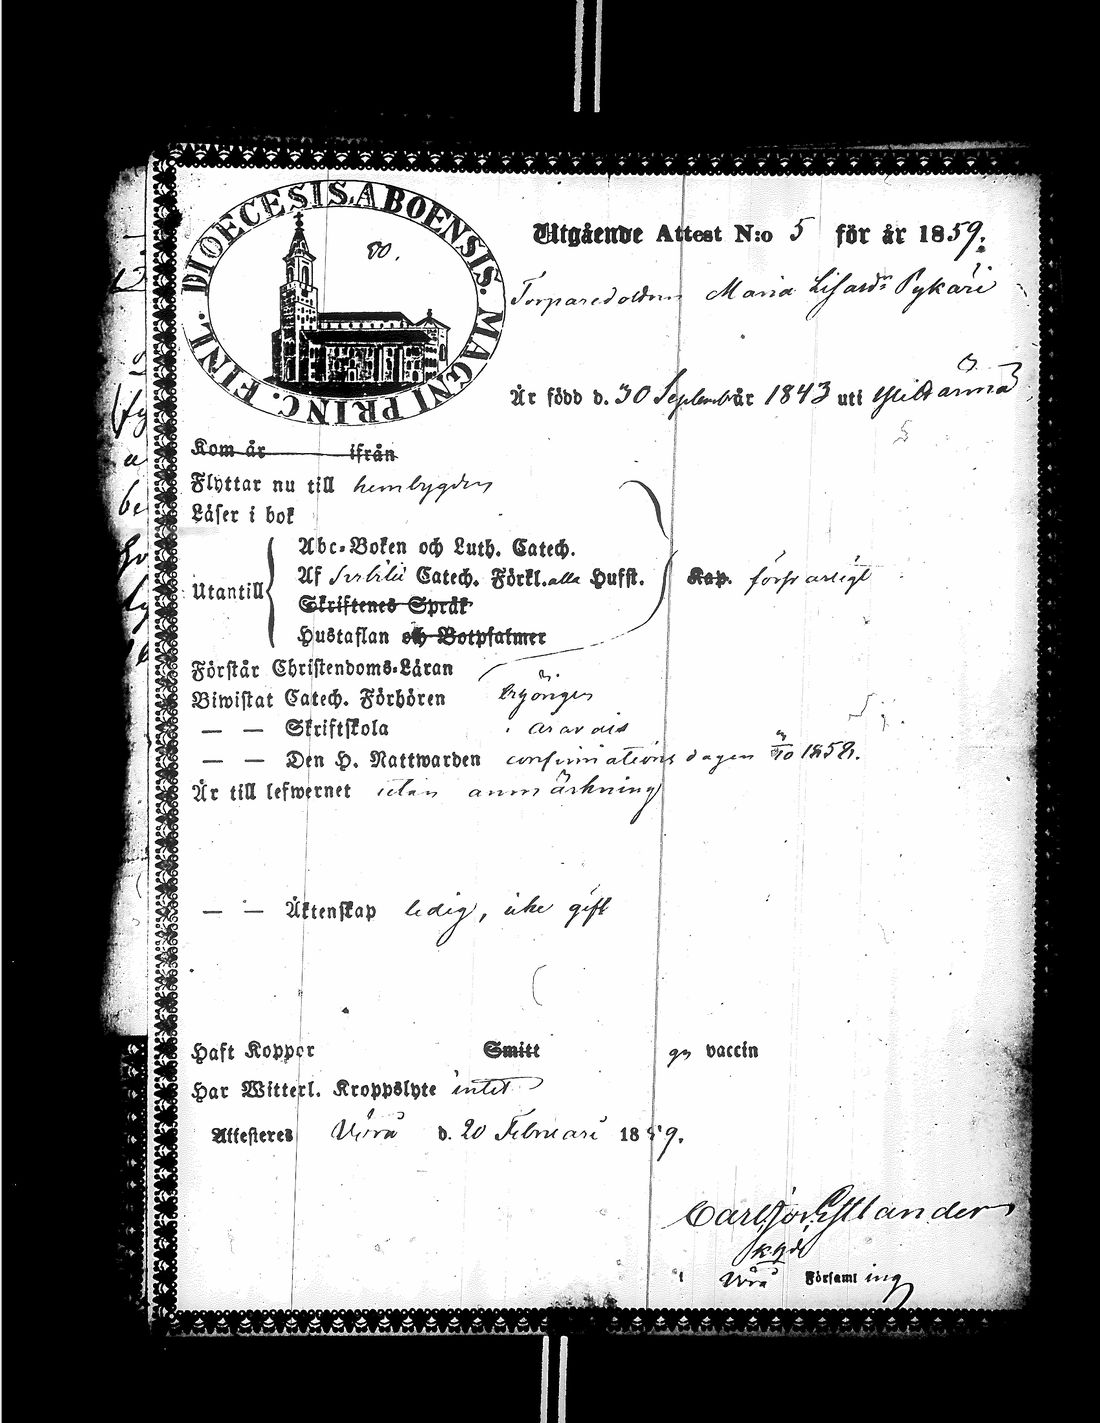 DIOECESIS ABOENSIS. MAGNI PRINC. FINL.
80.
Utgående Attest N:o 5 för år 1859.
Maria Lisard:r Pykäri
Är född d. 30 September år 1843 uti Ylistarma
Kom år ifrån
Flyttar nu till hembygden
Läser i bok
Utantill
Abc-Boken och Luth. Catech.
Af Svebilii Catech. Förkl. alla Hufst. Kap. försvarligt
Skriftenes Språk
Hustaflan och Botpsalmer
Förstår Christendoms-Läran
Biwistat Catech. Förhören
— — Skriftskola
— — Den H. Nattwarden confirmations dagen 1858.
Är till lefwernet utan anmärkning
— — Äktenskap ledig, icke gift
Haft Koppor Smitt vaccin
Har Witterl. Kroppslyte intet
Attesteras Vörå d. 20 Februari 1859.
Carl
i Vörå Församling